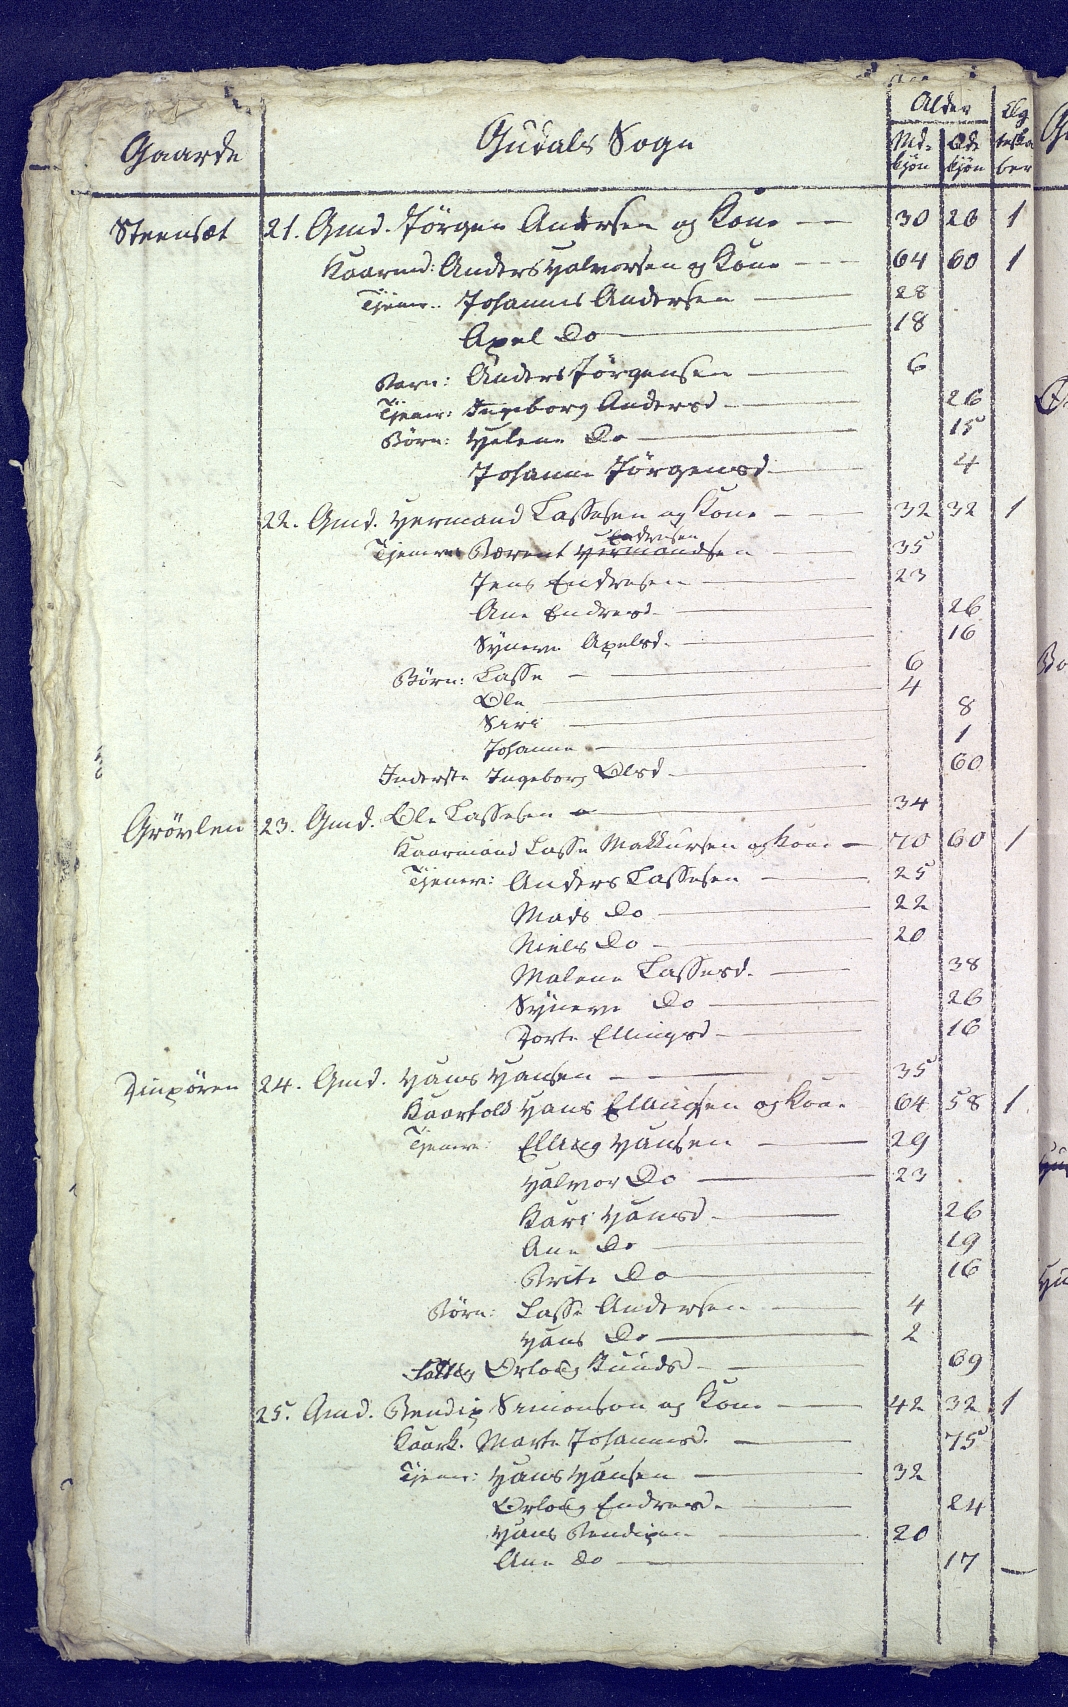 Gaarde Gudals Sogn Alder Egteskaber
Mdkjøn Qdekjøn
Steensæt 21. Gmd. Jörgen Andersen og Kone 30 26 1
Kaarmd: Anders Halvorsen og Kone 64 60 1
Tjener: Johannes Andersen 28
Axel Do 18
Barn: Anders Jörgensen 6
Tjener: Ingeborg Andersd 26
Börn: Helene Do 15
Johanne Jörgensd 4
22. Gmd. Hermand Lassesen og Kone 32 32 1
Endresen
Tjenere Bærent Hermandsen 35
Jens Endresen 23
Ane Endresd 26
Synneve Axelsd. 16
Börn: Lasse 6
Ole 4
Siri 8
Johanne 1
Inderste Ingeborg Olsd 60
Grövlen 23. Gmd. Ole Lassesen 34
Kaarmand Lasse Makkursen og Kone 70 60 1
Tjenere: Anders Lassesen 25
Mads Do 22
Niels Do 20
Malene Lassesd. 38
Synneve Do 26
Dorte Ellingsd 16
Dinxören 24. Gmd. Hans Hansen 35
Kaarfold Hans Ellingsen og Kone 64 58 1
Tjenere: Elling Hansen 29
Halvor Do 23
Kari Hansd 26
Ane Do 19
Brite Do 16
Börn: Lasse Andersen 4
Hans Do 2
Fattig Orloug Gundsd 69
25. Gmd. Bendix Simonson og Kone 42 32 1
Kaark. Marte Johannesd. 75
Tjener: Hans Hansen 32
Orloug Endresd. 24
Hans Bendixen 20
Ane do 17